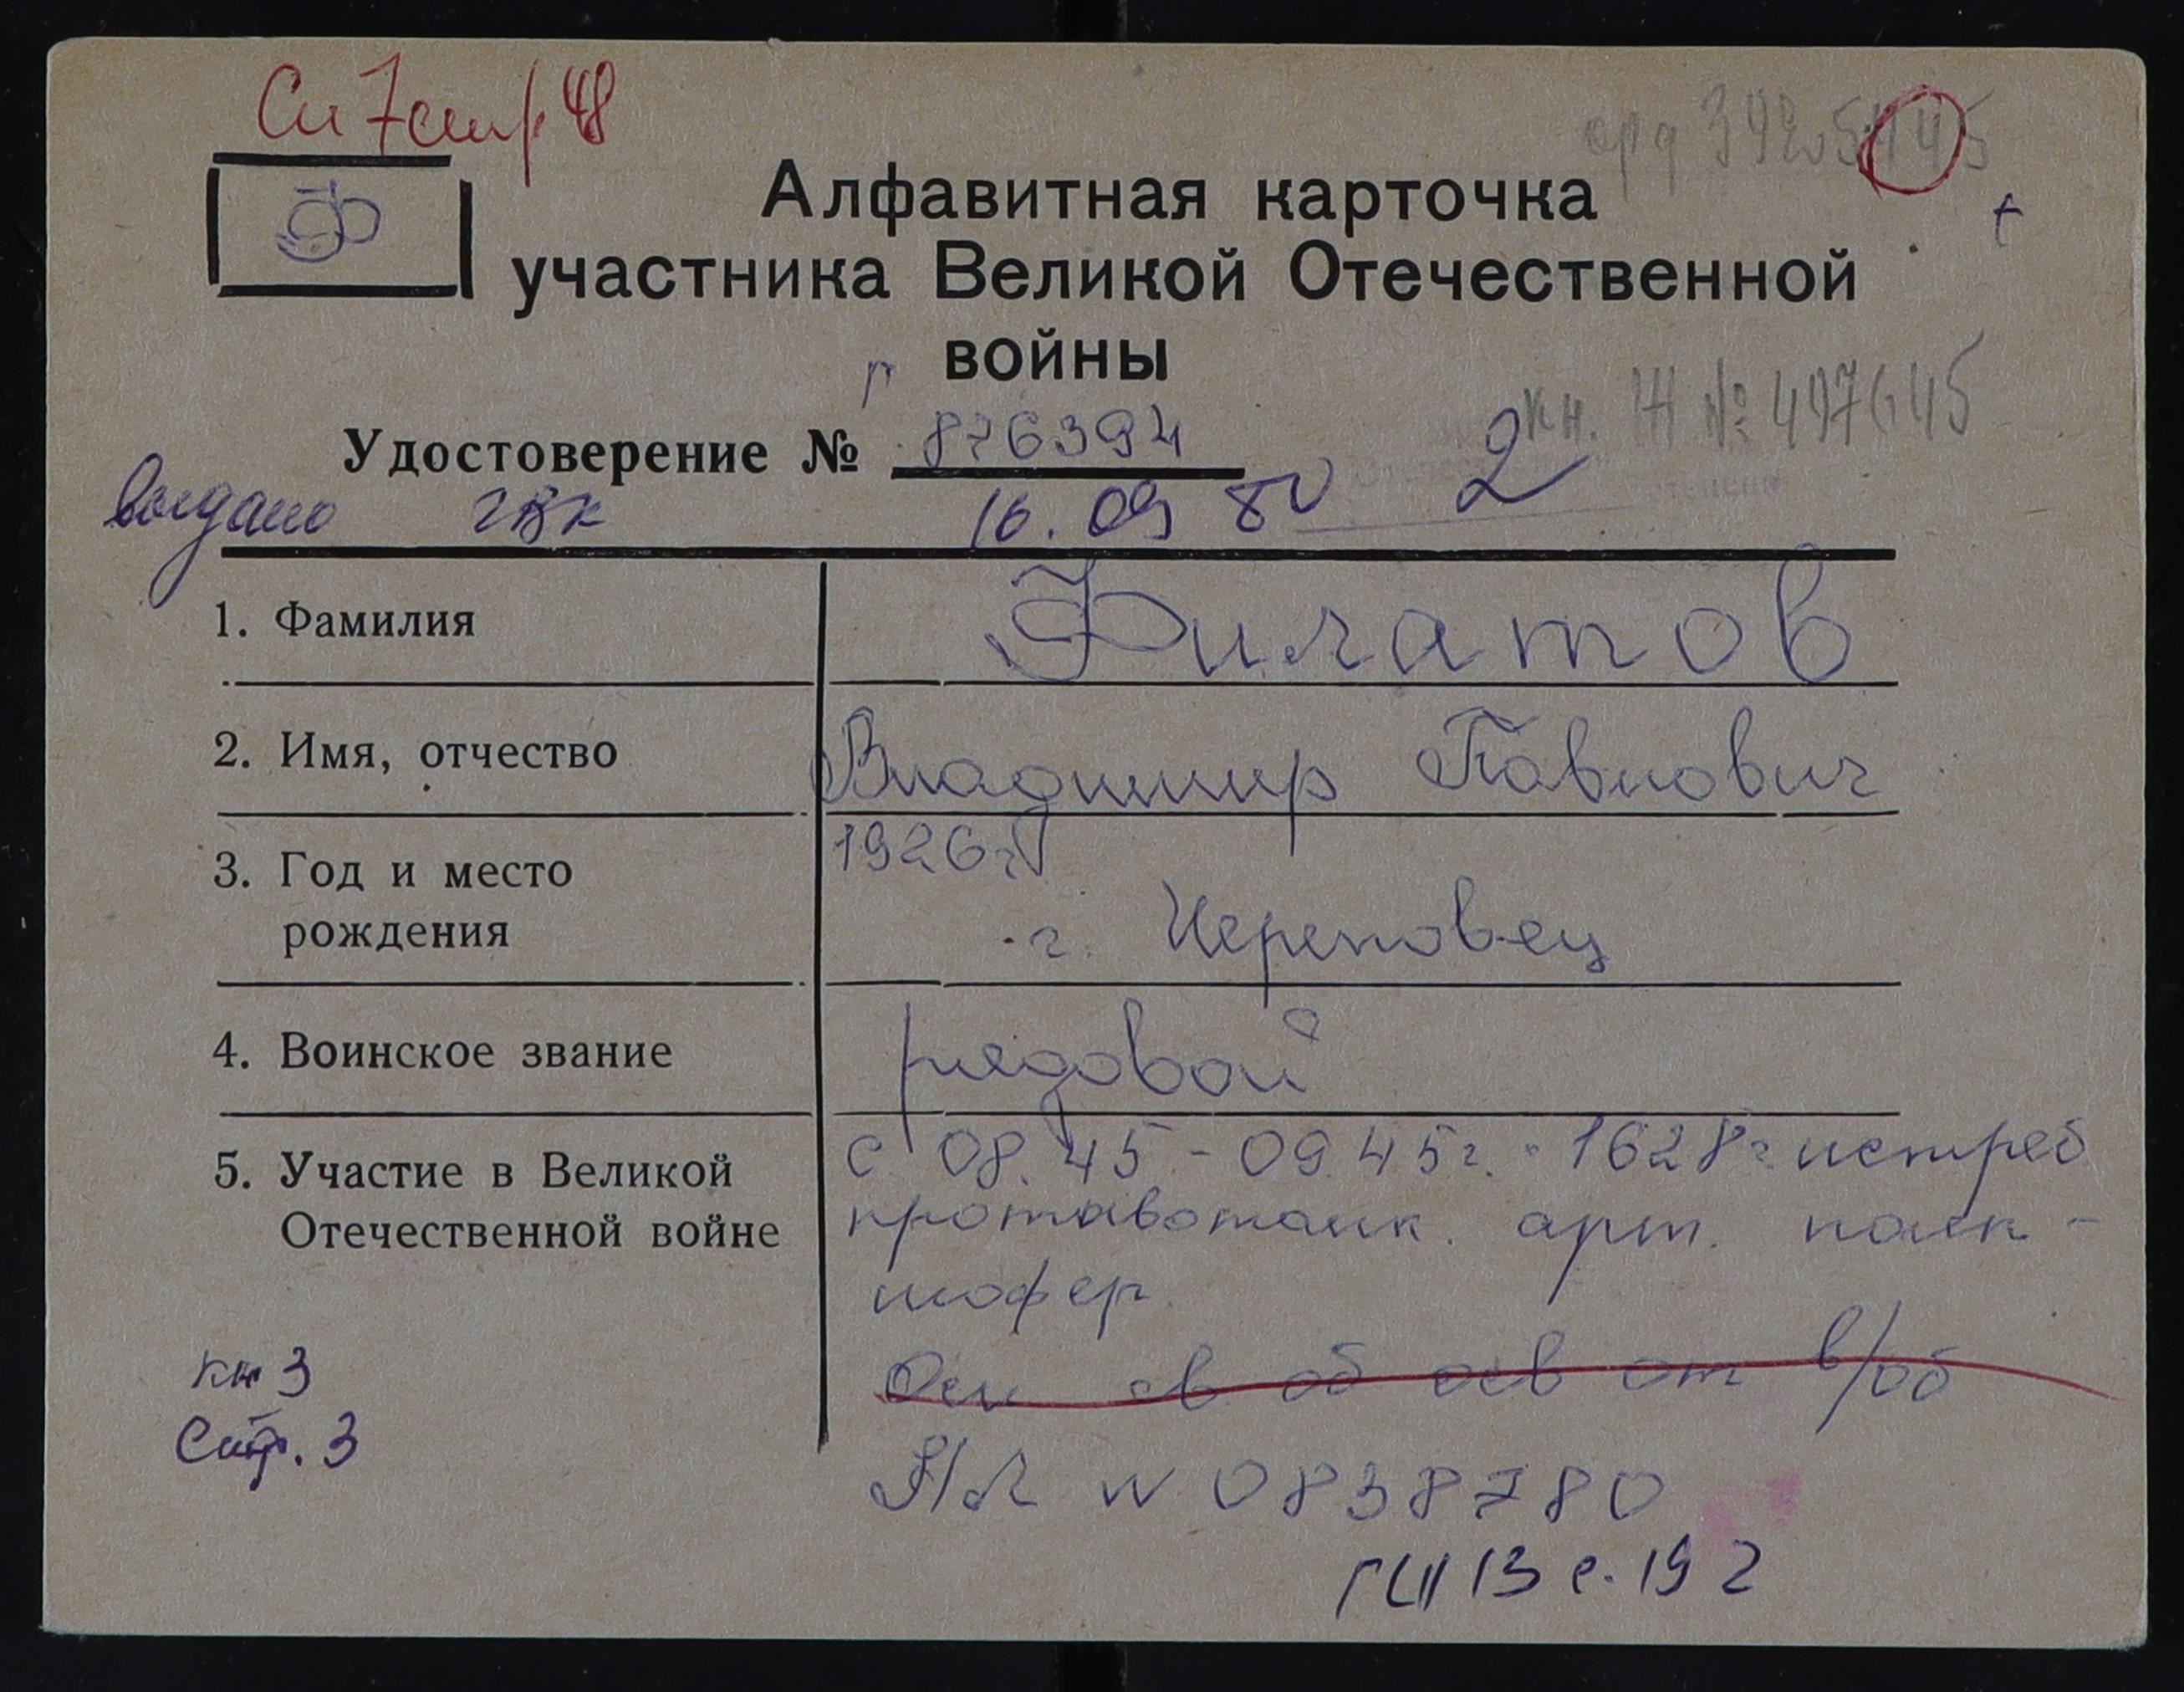 Сп 7 стр 48
Ф
Алфавитная карточка
участника Великой Отечественной
войны
Удостоверение № г 876394
кн. Ж № 497645
выдано ГВК 16.09 80 2
1. Фамилия Филатов
2. Имя, отчество Владимир Павлович
3. Год и место
рождения
1926 г.
г. Череповец
4. Воинское звание рядовой
5. Участие в Великой
Отечественной войне
с 08.45 - 09.45г. 1628 истреб
противотанк. арт. полк -
шофер.
Осн св об осв от в/об
кн 3
Стр. 3
№ 0838780
13 с. 19 2